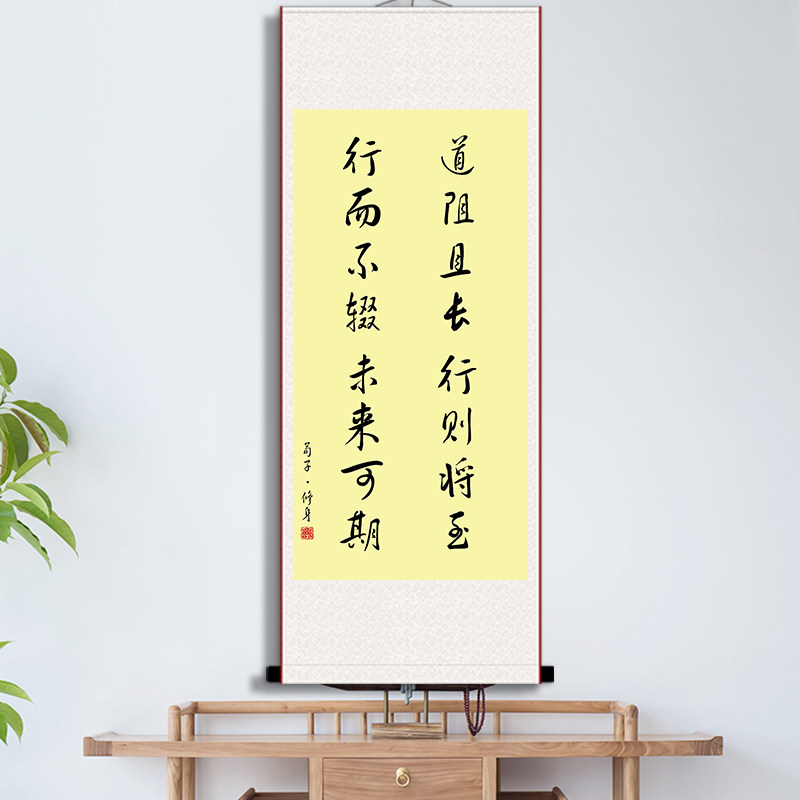 道阻且长行则将至
行而不辍未来可期
荀子·修身